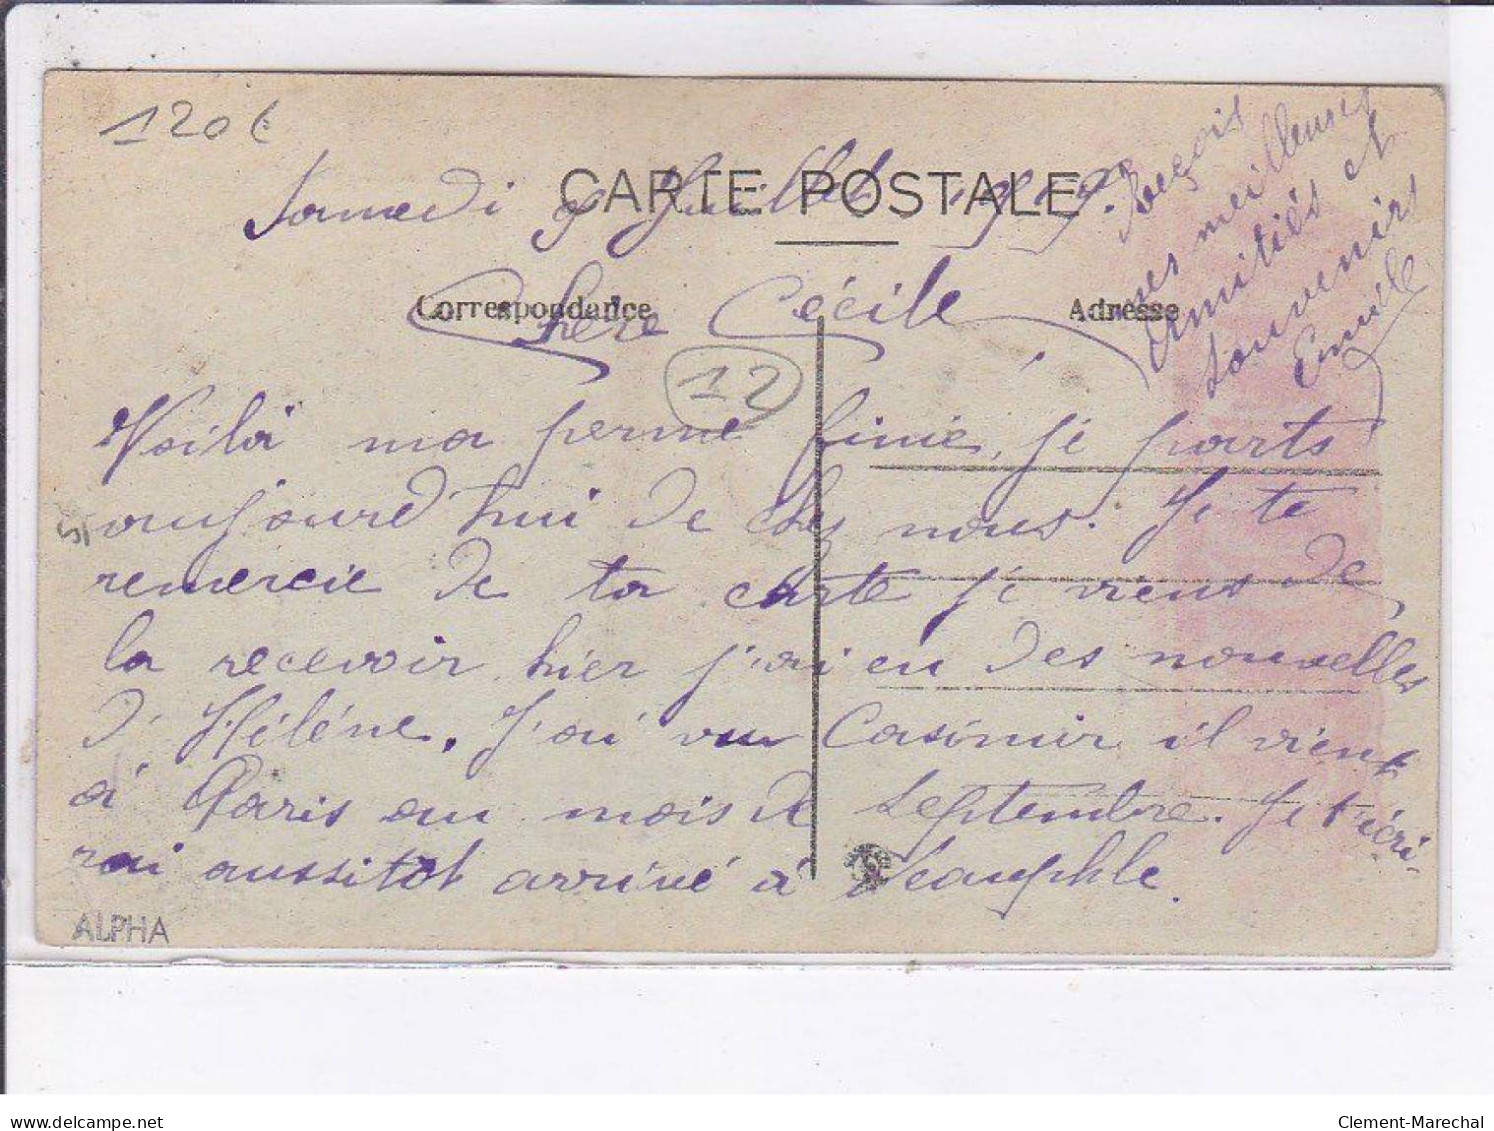 120€
CARTE POSTALE
Samedi 9 Juillet 1919.
Correspondance
Adresse
Chère Cécile
12
Voilà ma perme finie, je parts
aujourd'hui de chez nous. Je te
remercie de ta carte je viens de
la recevoir, hier j'ai eu des nouvelles
d'Hélène. J'ai vu Casimir il vient
à Paris au mois de Septembre. Je t'écri-
rai aussitot arrivé à
Reçois
mes meilleures
Amitiés et
souvenirs
Emile
ALPHA
delcampe.net
Clement-Marechal